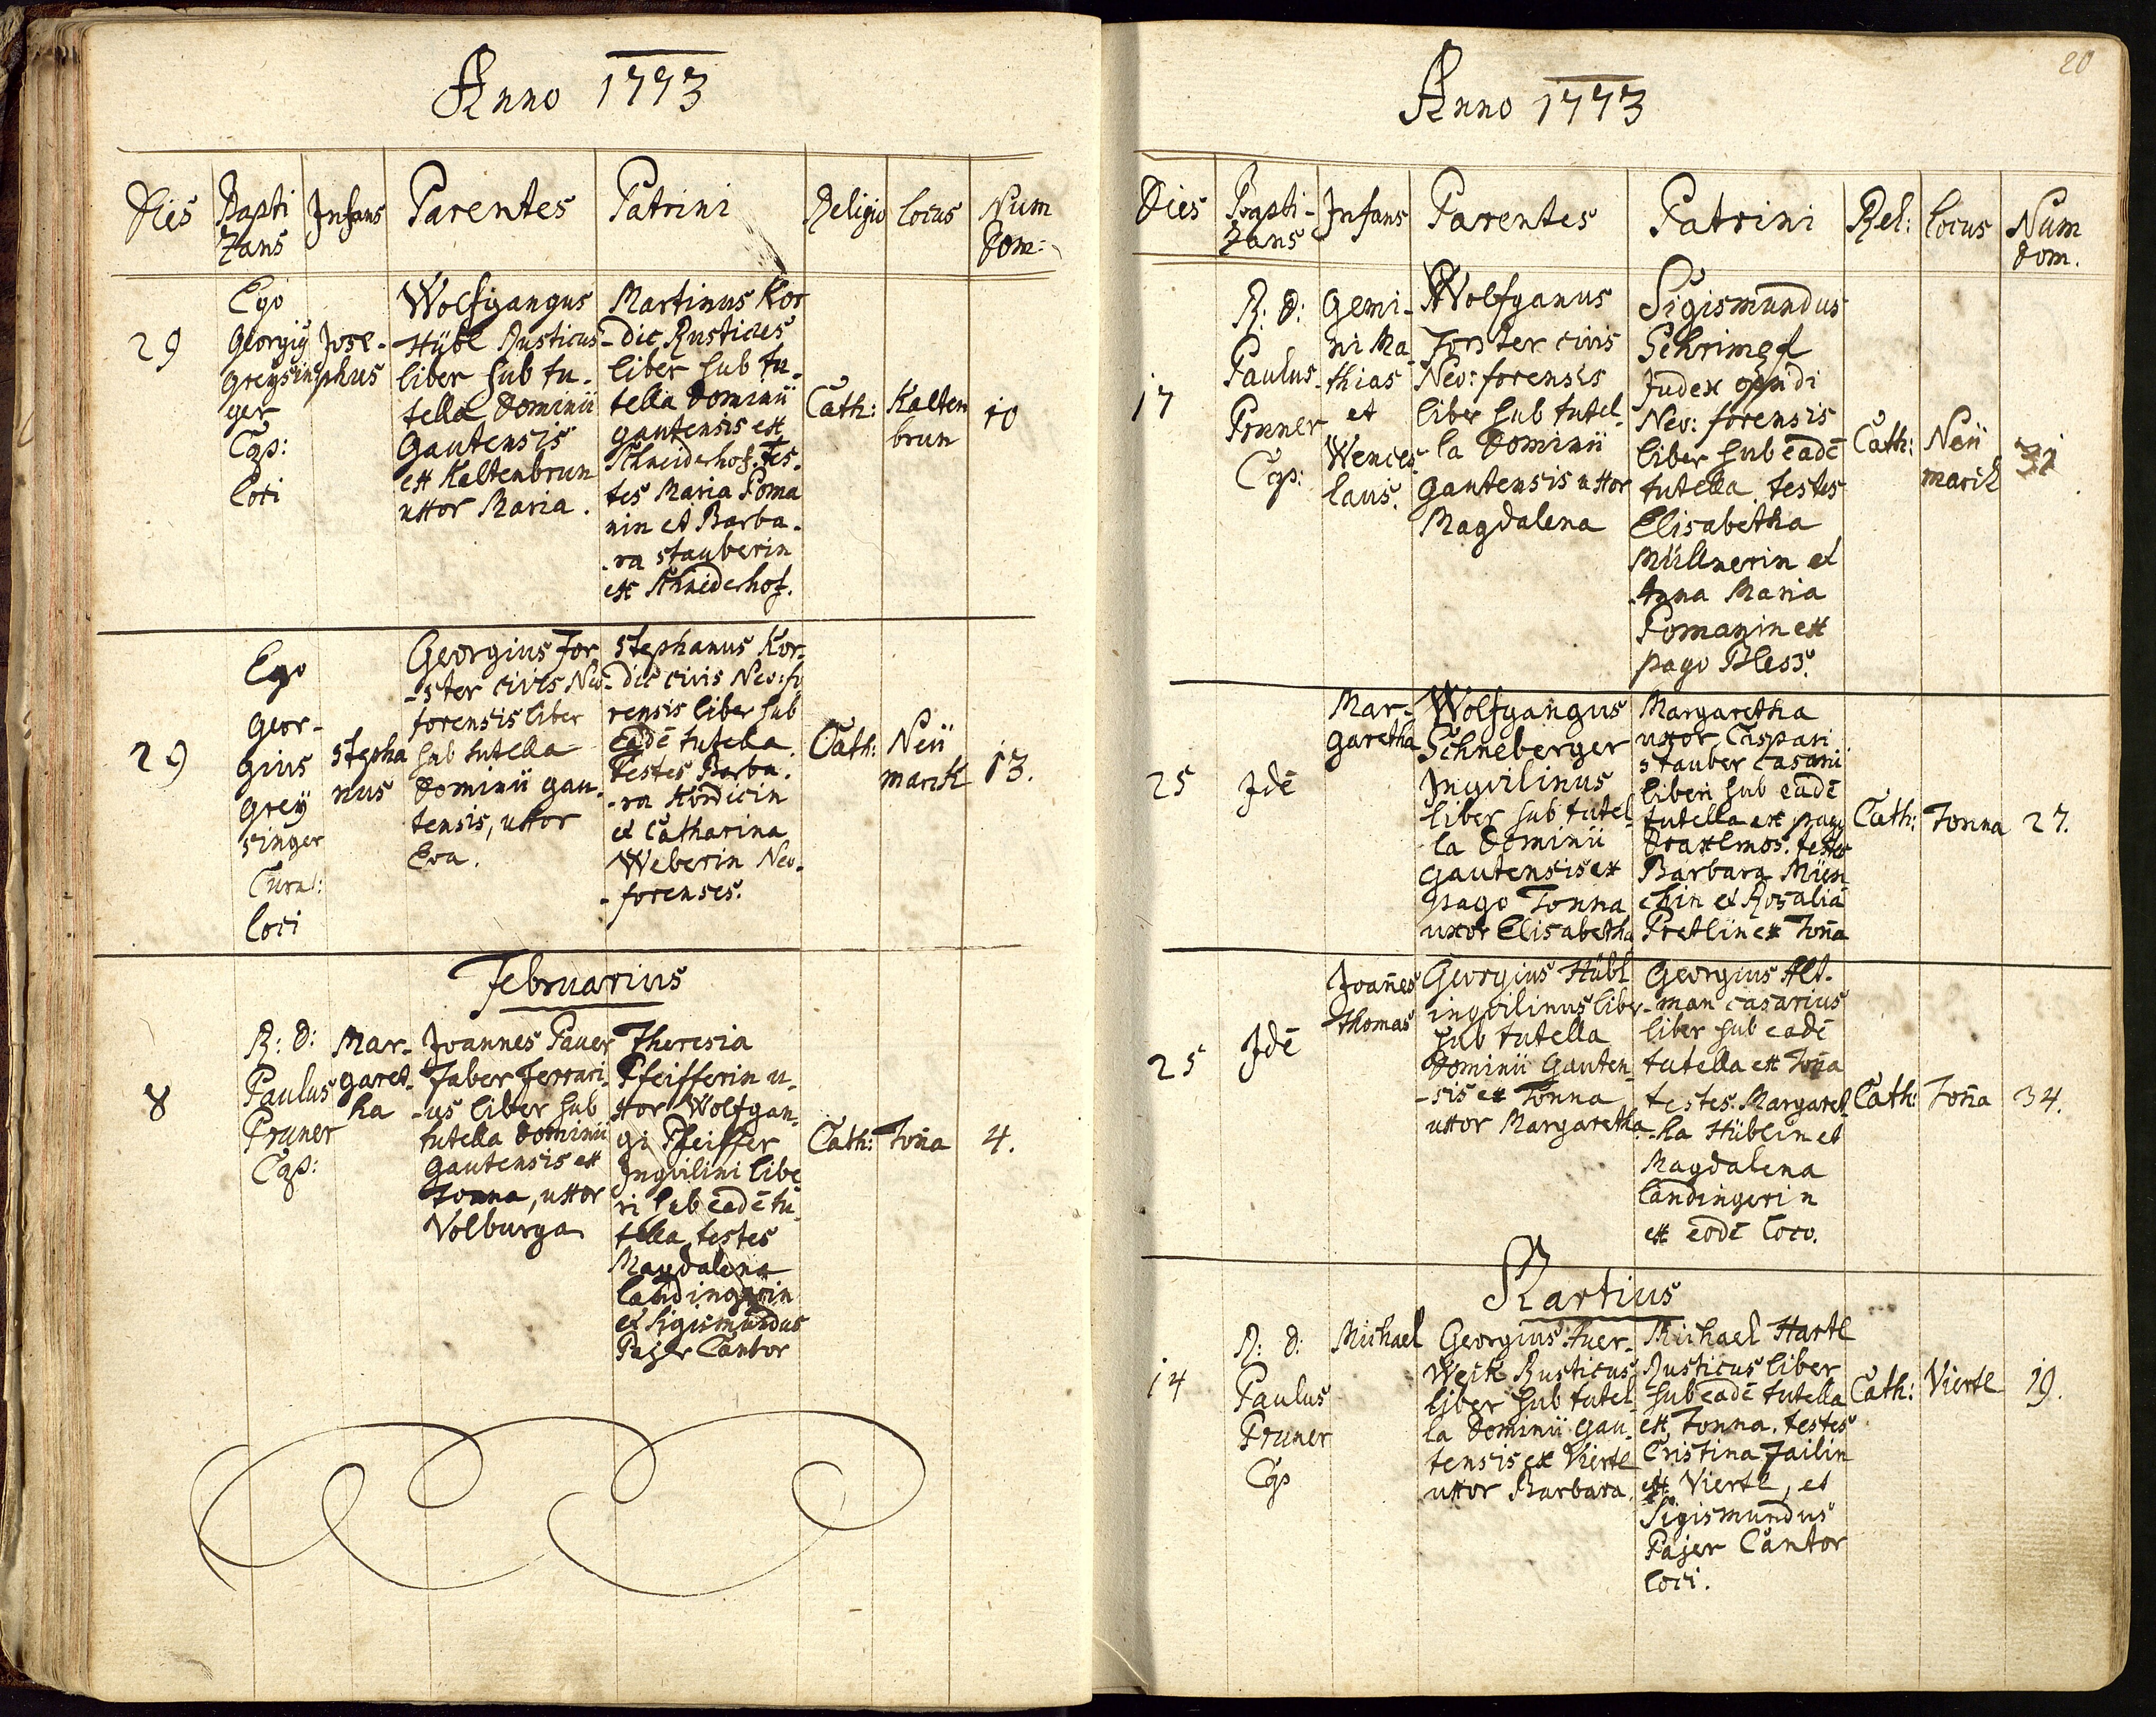 Anno 1773
Dies Bapti Infans Parentes Patrini Religio locus Num
zans Dom:
29
Ego
Georgiy
Greysin
ger
Cap:
loci
Jose-
phus
Wolfgangus
Hübl Rusticus
liber sub tu-
tella Dominii
Gautensis
ex Kaltenbrun
uxor Maria.
Martinus Kor
-dic Rusticus
liber sub tu-
tella Dominii
gautensis ex
Schneiderhof. Tes-
tes Maria Poma
nin et Barba-
-ra Stauberin
ex Schneiderhof.
Cath:
Kalten
brun
10
29
Ego
Geor-
gius
Greÿ
singer
Cura:
loci
Stepha
nus
Georgius For
-ster civis Neo-
forensis liber
sub tutella
Dominii gau-
tensis, uxor
Eva.
Stephanus Kor-
dic civis Neo:fo
rensis liber sub
eadē tutella.
Testes Barba-
-ra Kordicin
et Catharina
Weberin Neo-
-forenses.
Cath:
Neü
marck
13.
Februarius
8
R: D:
Paulus
Pruner
Cap:
Mar-
garet-
ha
Joannes Pauer
Faber Ferrari-
-us liber sub
tutella Dominii
Gautensis ex
Tonna, uxor
Volburga
Theresia
Pfeifferin u-
xor Wolfgan-
gi Pfeiffer
Inqvilini libe
ri sub eadē tu-
tella, testes
Magdalena
landingerin
et Sigismundus
Pajer Cantor
Cath:
Toña
4.
20
Anno 1773
Dies Bapti- Infans Parentes Patrini Rel: locus Num
zans Dom.
17
R: D:
Paulus
Pruner
Cap:
Gemi-
ni Ma
thias
et
Wences
laus.
Wolfganus
Forster civis
Neo: forensis
liber sub tutel-
la Dominii
Gautensis uxor
Magdalena
Sigismundus
Schrimpf
Judex oppidi
Neo: forensis
liber sub eadē
tutella, testes
Elisabetha
Müllnerin et
Anna Maria
Pomanin ex
pago Bless.
Cath:
Neü
marck
31
25
Jdē
Mar-
garetha
Wolfgangus
Schneberger
Inqvilinus
liber sub tutel-
la Dominii
Gautensis ex
pago Tonna
uxor Elisabetha
Margaretha
uxor Caspari
Stauber Casarii
liberi sub eadē
tutella ex pago
Braxlmos. testes
Barbara Mün
chin et Rosalia
Pretlin ex Toña
Cath:
Tonna
27.
25
Jdē
Joañes
Thomas
Georgius Hübl
inqvilinus liber
sub tutella
Dominii Gauten-
-sis ex Tonna
uxor Margaretha
Georgius Alt-
-man casarius
liber sub eadē
tutella ex Toña
testes Margaret-
-ha Hüblin et
Magdalena
landingerin
ex eodē loco.
Cath:
Toña
34.
Martius
14
R: D:
Paulus
Pruner
Cap
Michael
Georgius Auer-
Weck Rusticus
liber sub tutel
la Dominii gau-
tensis ex Viertl
uxor Barbara.
Michael Hartl
Rusticus liber
sub eadē tutella
ex Tonna. testes
Cristina Failin
ex Viertl, et
Sigismundus
Pajer Cantor
loci.
Cath:
Viertl
19.